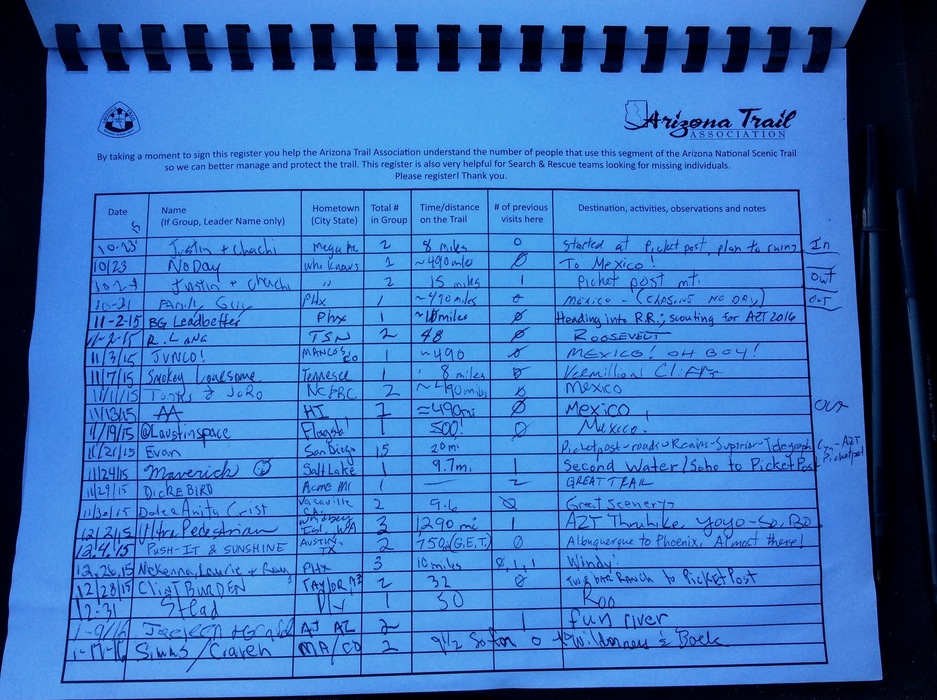 Arizona Trail
ASSOCIATION
By taking a moment to sign this register you help the Arizona Trail Association understand the number of people that use this segment of the Arizona National Scenic Trail
so we can better manage and protect the trail. This register is also very helpful for Search & Rescue teams looking for missing individuals.
Please register! Thank you.
Date Name (If Group, Leader Name only) Hometown (City State) Total # in Group Time/distance on the Trail # of previous visits here Destination, activities, observations and notes
10-23 Justin + Chachi 2 8 miles 0 Started at Picket post, plan to In
10/23 No Day who knows 1 ~490 miles Ø To Mexico!
Justin + Chachi " 2 15 miles 1 Picket post mt. out
10-31 Family Guy PHX 1 ~490 miles 0 MEXICO - (CHASING NO DAY) OUT
11-2-15 BG Leadbetter Phx 1 Ø Heading into R.R.; scouting for AZT 2016
11-2-15 R. Lang TSN 2 48 Ø ROOSEVELT
11/3/15 JUNCO! MANCOS, CO 1 ~490 Ø MEXICO! OH BOY!
11/7/15 Smokey Lonesome Tennessee 1 8 miles Ø Vermillion Cliffs
11/11/15 2 ~490 miles Ø Mexico
11/13/15 AA HI 7 ≈490mi Ø Mexico, Out
11/19/15 @Laustinspace Flagstaff 1 500! Ø Mexico.
11/21/15 Evan San Diego 20mi Picketpost-roads-Rcains-Superior-Telegraph Cyn-AZT-Picketpost
11/29/15 Maverick Salt Lake 1 9.7mi 1 Second Water/Soho to Picket Post
11/29/15 DICKEBIRD ACME MI 1 — 2 GREAT TRAIL
11/30/15 Vacaville CA. 2 9.6 Ø Great Scenery
12/2/15 Ultra Pedestrian WA 3 1290 mi 1 AZT Thruhike, Yoyo-So, Bo
12.4.15 PUSH-IT & SUNSHINE AUSTIN, TX 2 750 (G.E.T.) Ø Albuquerque to Phoenix, Almost there!
12,26,15 McKenna, Laurie + Ray PHX 3 10 miles 0,1,1 Windy!
12/28/15 Clint BURDEN TAYLOR AZ 2 32 Ø Ranch to Picket Post
12.31 Stead 1 50 Roo
1-9/16 AJ AZ 2 1 fun river
1-17-16 Simms/Craven MA/CO 2 9 1/2 So far 0